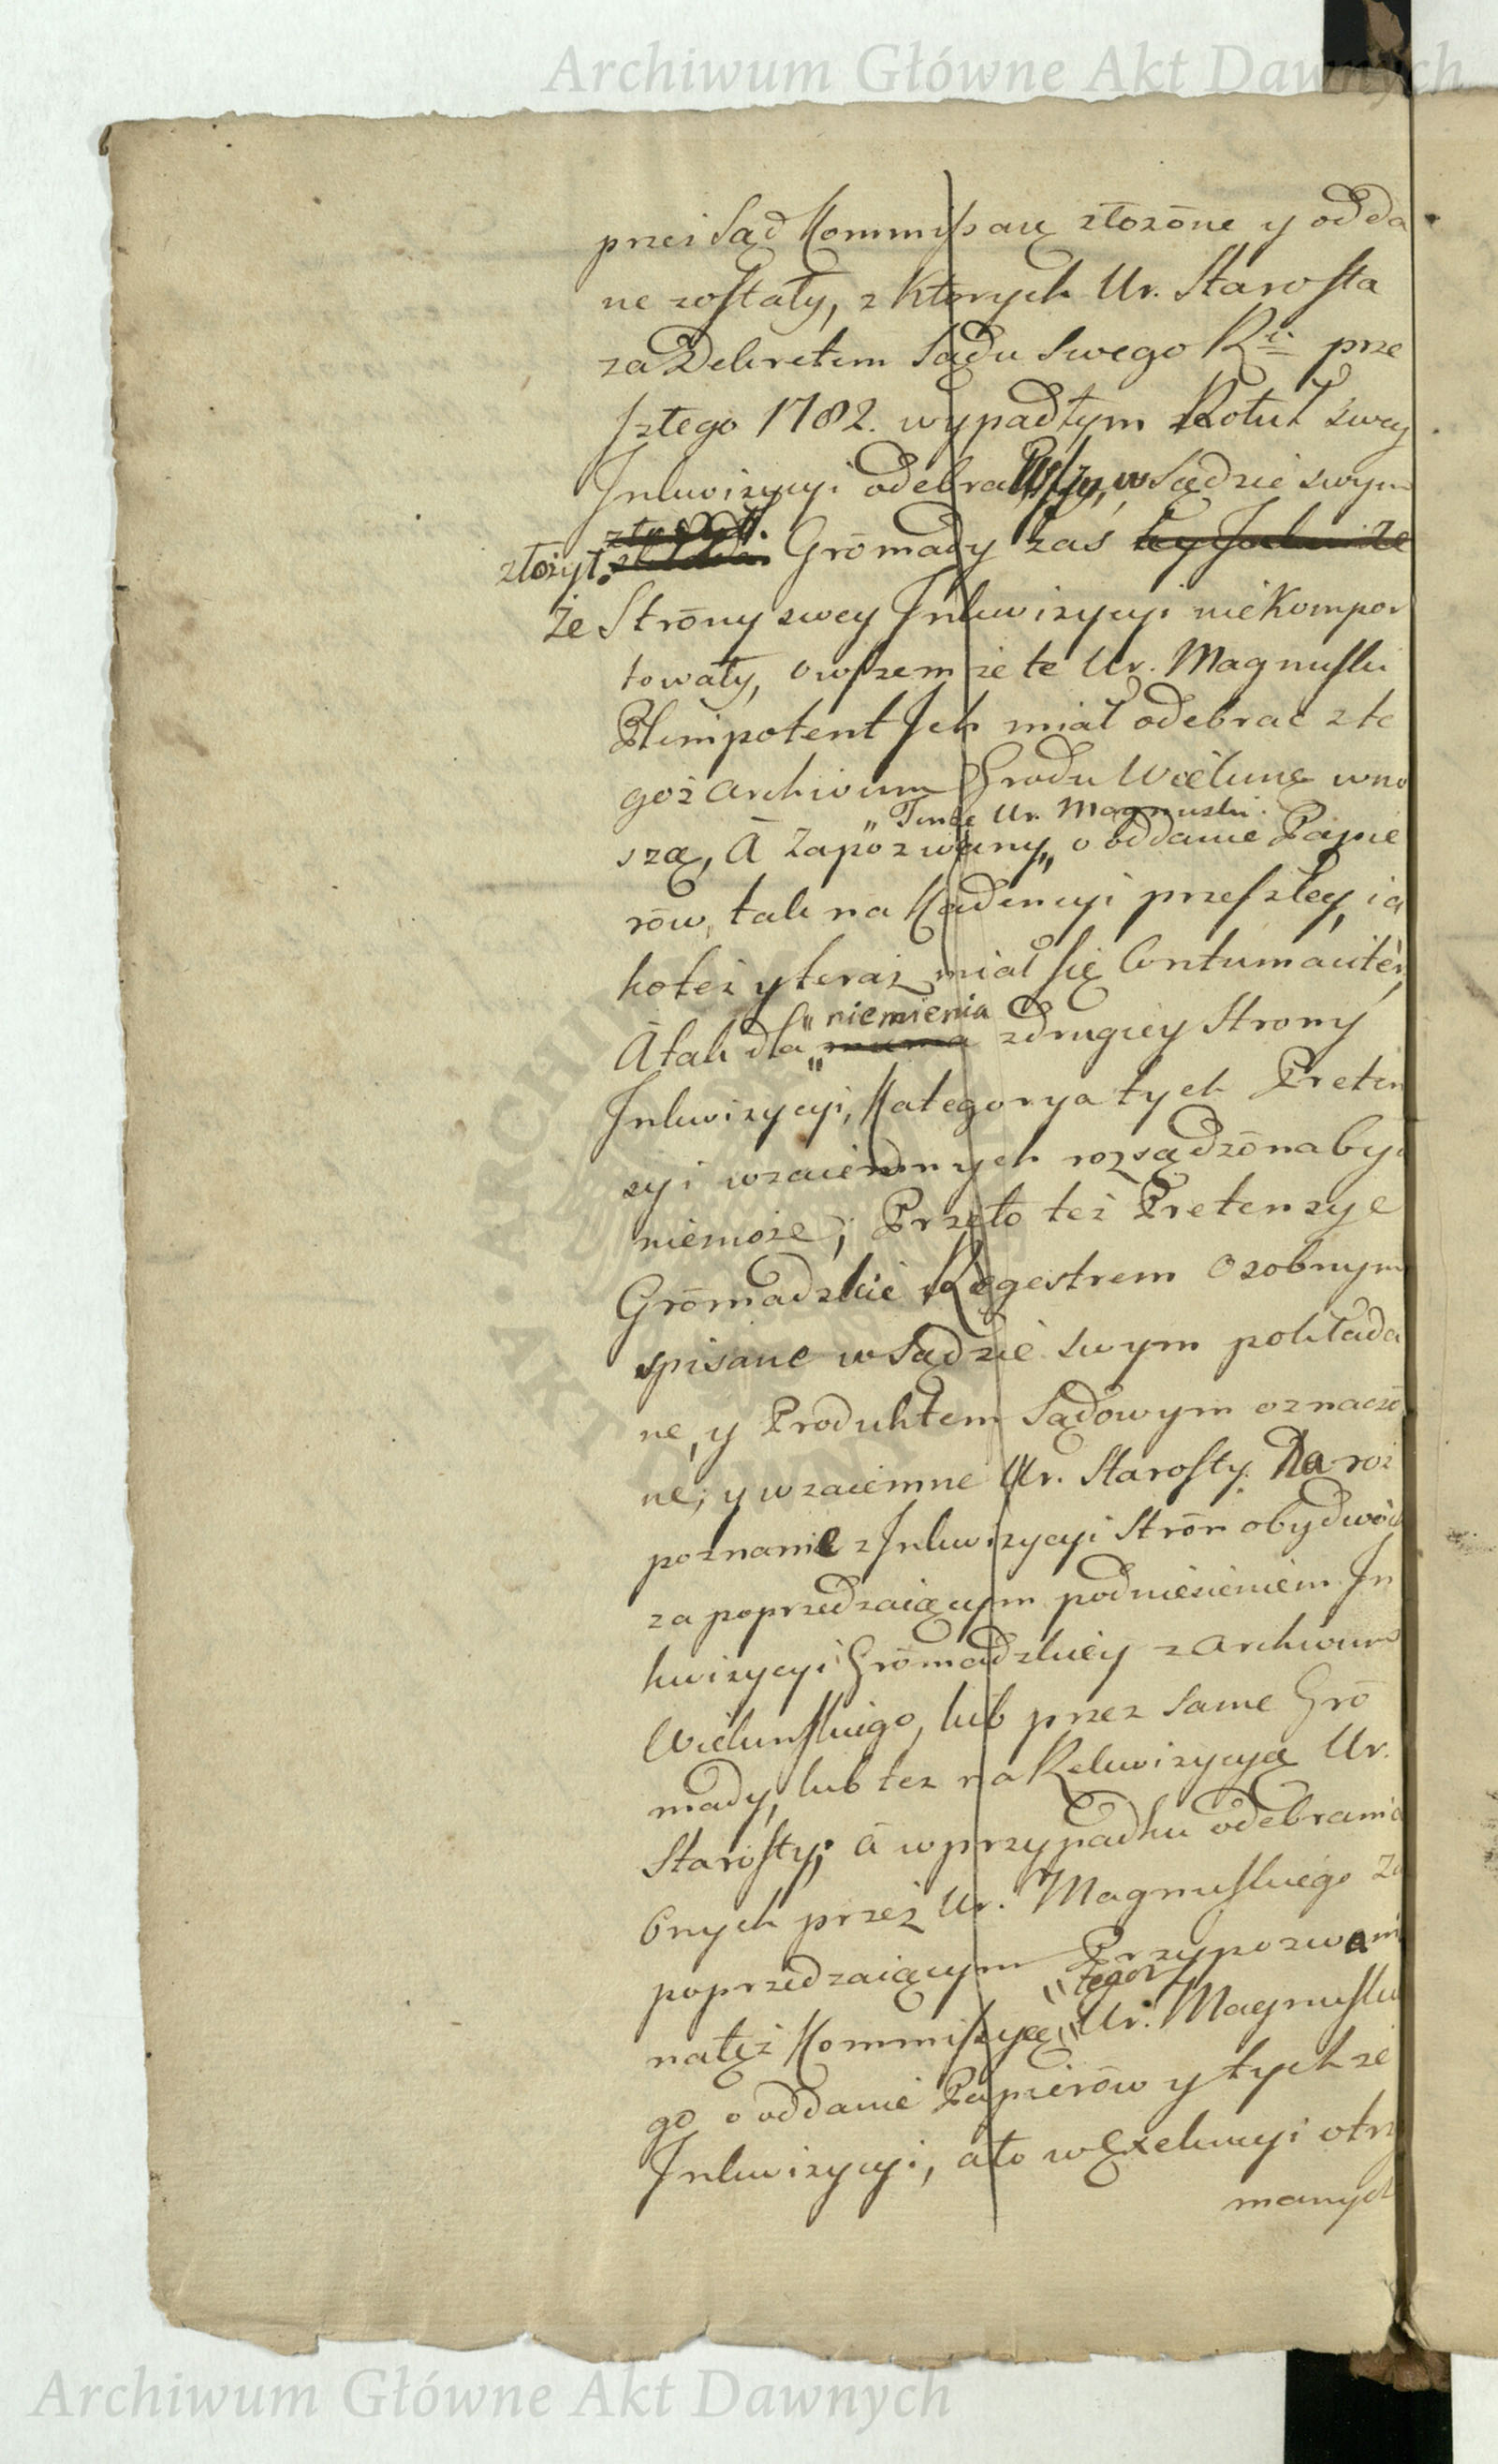 Archiwum Główne Akt Dawnych
przez Sąd Kommissarż złozōne y odda
ne zostały, z Ktorych Ur. Starosta
za Dekretem Sądu Swego Ru prze
szłego 1782. wypadłym Rotuł swey
Inkwizycyi odebrawszy, w Sądzie swym
złożył. Grōmady zaś
że Strōny swey Inkwizycyi nie Kompor
towały, owszem że te Ur. Magnuski
Plenipotent Ich miał odebrać z te
goż Archivum Grodu Wielunę wno
„Tenże Ur. Magnuski
szą, A Zapozwany„ o oddanie Papie
rów, tak na Kadencyi przeszłey, ia
ko też y teraz miał się Contumaciter,
„niemienia
A tak dla „ z drugiey Strony
Inkwizycyi, Kategorya tych Preten
syi wzaiemnych rozsądzōna być
niemoże; Przeto też Pretensye
Grōmadzkie Regestrem Osobnym
spisane w Sądzie swym pokłada
ne, y Produktem Sądowym oznaczō
ne; y wzaiemne Ur. Starosty. Na roz
poznanie z Inkwizycyi Strōn obydwóch
za poprzedzaiącym podniesieniem In
kwizycyi Grōmadzkiey z Archivum
Wielunskiego, lub przez same Grō
mady, lub też na Rekwizycyą Ur.
Starosty; á w przypadku odebrania
Onych przez Ur. Magnuskiego Za
poprzedzaiącym Przypozwani
„tegoż
na tęż Kommissyą „Ur. Magnuskie
go o oddanie Papierōw y tychże
Inkwizycyi, a to w Exekucyi otrzy
manych
ARCHIWUM
AKT DAWNYCH
Archiwum Główne Akt Dawnych